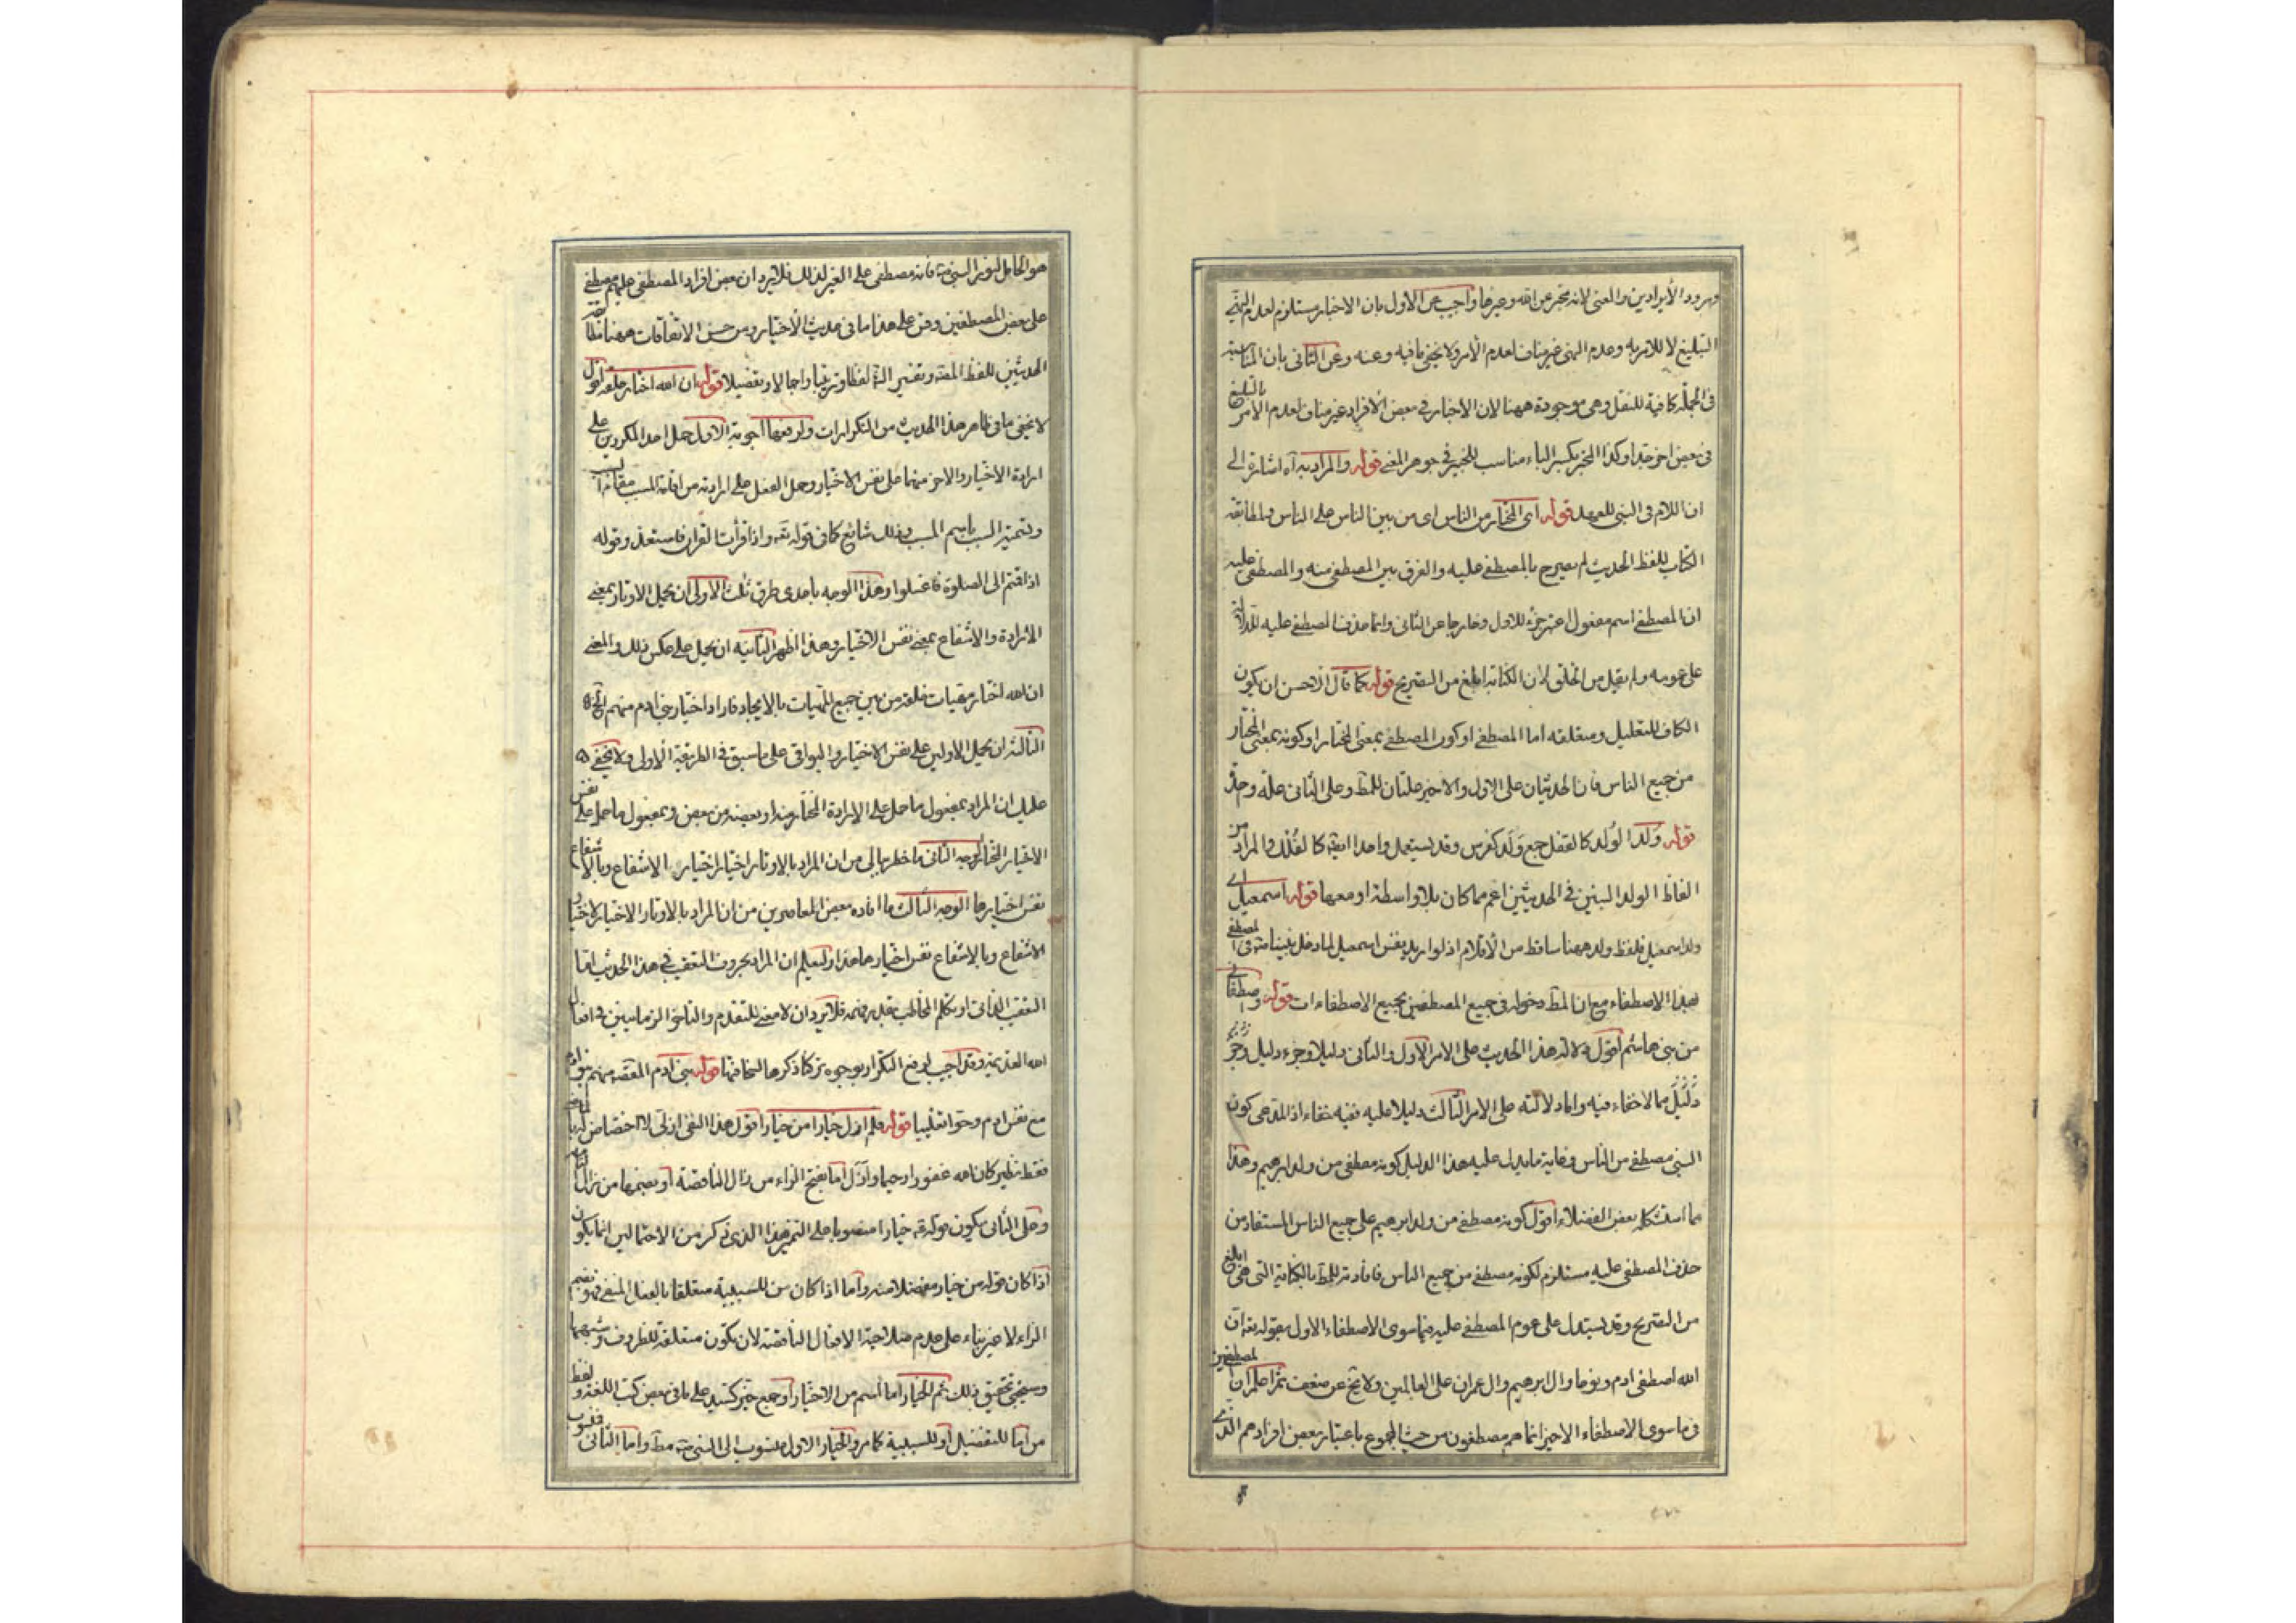 ورود الأيرادين والمعنى لانه مخبر عن الله وغيرها واجيب عن الاول بان الاخبار مستلزم لعدم النهى
التبليغ لا للامر به وعدم النهى غير مناف لعدم الأمر ولا يخفى ما فيه وعنه وعن الثانى بان المناسبة
فى الجملة كافية للنقل وهى موجودة ههنا لان الاخبار فى بعض الأفراد غير مناف لعدم الأمر بالتبليغ
فى بعض اخر جدا وكذا المخبر بكسر الباء مناسب للخبر فى جوهر المعنى قوله والمراد به آه اشارة الى
ان اللام فى النبى للعهد قوله اى المختار من الناس اى من بين الناس على الناس والمطابقة
الكتاب للفظ الحديث لم يصرح بالمصطفى عليه والفرق بين المصطفى منه والمصطفى عليه
ان المصطفى اسم مفعول اعتبر جزء للاول وخارجا عن الثانى وانما حذف المصطفى عليه
على عومه ولم يقيل من الخلق لان الكناية ابلغ من التصريح قوله كما قال الاحسن ان يكون
الكاف للتعليل ومتعلقه اما المصطفى او كون المصطفى بمعنى المختار او كونه بمعنى المختار
من جميع الناس فان الحديثان على الاول والاخير علتان للمط وعلى الثانى علة وجزء
قوله ولد الوُلد كالقفل جمع وَلَد كفرس وقد يستعمل واحدا ايضا كالفُلك والمراد من
الفاظ الولد البنين فى الحديثين اعم مما كان بلا واسطة او معها قوله اسمعيل اى
ولد اسمعيل فلفظ ولد ههنا ساقط من الأقلام اذ لو اريد نفس اسمعيل لما دخل نبينا فى المصطفى
بهذا الاصطفاء مع ان المط دخوله فى جميع المصطفين بجميع الاصطفاءات قوله واصطفانى
من بنى هاشم اقول دلالة هذا الحديث على الامر الاول والثانى دليلا وجزء دليل وجزء
دليل مما لا خفاء فيه واما دلالته على الامر الثالث دليلا عليه ففيه خفاء اذ المدعى كون
النبى مصطفى من الناس وغاية ما يدل عليه هذا الدليل كونه مصطفى من ولد ابرهيم وهذا
مما استشكله بعض الفضلاء اقول كونه مصطفى من ولد ابرهيم على جميع الناس المستفاد من
حذف المصطفى عليه مستلزم لكونه مصطفى من جميع الناس فافادته للمط بالكناية التى هى ابلغ
من التصريح وقد يستدل على عوم المصطفى عليه فيما سوى الاصطفاء الاول بقوله تعه ان
الله اصطفى ادم ونوحا وال ابرهيم وال عمران على العالمين ولا يخ عن ضعف ثم اعلم ان المصطفين
فى ما سوى الاصطفاء الاخير انما هم مصطفون من حيث المجموع باعتبار بعض افرادهم الذى
هو الحامل لنور النبى فانه مصطفى على الغير لذلك فلا يرد ان بعض افراد المصطفى عليهم مصطفى
على بعض المصطفين وقس على هذا ما فى حديث الأختيار ومن حسن الاتفاقات ههنا
الحديثين للفظ المتن وتفسير لفظا وترتيبا واجمالا وتفصيلا قوله ان الله اختار خلقه اقول
لا يخفى ما فى ظاهر هذا الحديث من التكرارات ولدفعها اجوبة الاول حمل احد المكررين على
ارادة الاختيار والاخر منهما على نفس الاختيار وحمل الفعل على ارادته من اقامة المسبب مقام السبب
وتسمية السبب باسم المسبب وذلك شائع كما فى قوله تعه واذا قرأت القران فاستعذ وقوله
اذا قمتم الى الصلوة فاغسلوا وهذا الوجه باحدى طرق ثلث الأولى ان يحمل الاوتار بمعنى
الارادة والأشفاع بمعنى نفس الاختيار وهذا اظهر الثانية ان يحمل على عكس ذلك والمعنى
ان الله اختار مهيات خلقه من بين جميع المهيات بالايجاد فاراد اختيار بنى ادم منهم الخ
الثالثة ان يحمل الاولين على نفس الاختيار والبواقى على ما سبق فى الطريقة الاولى ولا يخفى
عليك ان المراد بمفعول ما حمل على الارادة المختار منه او بعضه من بعض وبمفعول ما حمل على نفس
الاختيار المختار الوجه الثانى ما خطر ببالى من ان المراد بالاوتار اختيار اختيار الاشفاع وبالاشفاع
نفس اختيارها الوجه الثالث ما افاده بعض المعاصرين من ان المراد بالاوتار الاختيار لاختيار
الاشفاع وبالاشفاع نفس اختيارها هذا وليعلم ان المراد بحروف التعقيب فى هذا الحديث اما
التعقيب الذاتى او تكلم المخاطب بقدر فهمه فلا يرد ان لا معنى للتقدم والتاخر الزمانيين فى افعال
الله القديمة وقد اجيب لدفع التكرار بوجوه تركنا ذكرها لسخافتها قوله بنى ادم المقصود منهم
مع نفس ادم وحوا تغليبا قوله فلم ازل خيارا من خيار اقول هذا النفى ازلى لا اختصاص له بالماضى
فقط نظير كان الله غفورا رحيما وازل اما بفتح الزاء من زال الناقصة او بضمها من زال التامة
وعلى الثانى يكون قوله خيارا منصوبا على التميز هذا الذى ذكر من الاحتمالين انما يكون
اذا كان قوله من خيار مفضلا منه واما اذا كان من للسببية متعلقا بالفعل المنفى فهو بضم
الزاء لا غير بناء على عدم صلاحية الافعال الناقصة لان يكون متعلقة للظروف وشبهها
وسيجئ تحقيق ذلك ثم الخيار اما اسم من الاختيار او جمع خير كسيد على ما فى بعض كتب اللغة ولفظ
من اما للتفضيل او للسببية كما مر والخيار الاول منسوب الى النبى مط واما الثانى